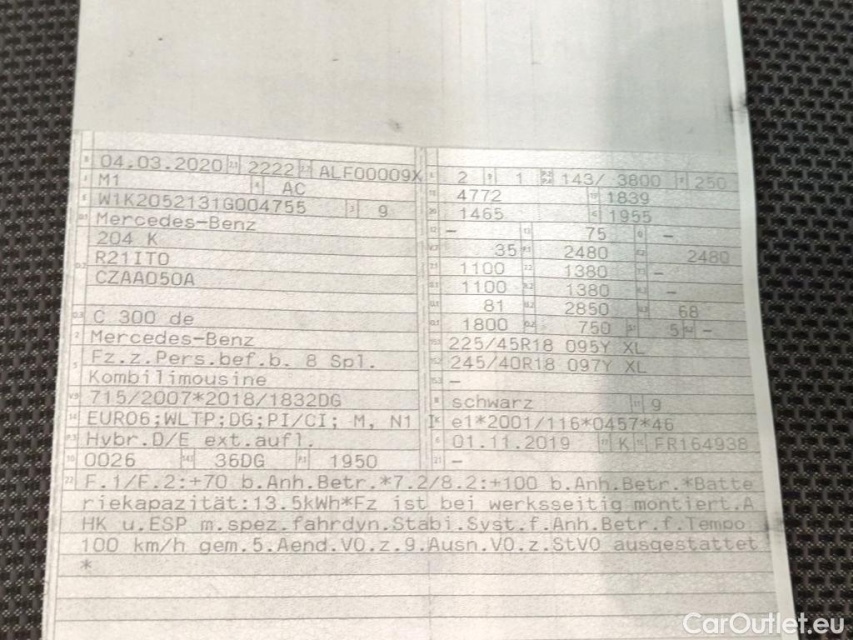 04.03.2020 2222 ALF00009X 2 1 143/ 3800 250
M1 AC 4772 1839
W1K2052131G004755 9 1465 1955
Mercedes-Benz - 75 -
204 K 35 2480 2480
R21ITO 1100 1380 -
CZAA050A 1100 1380 -
81 2850 68
C 300 de 1800 750 5 -
Mercedes-Benz 225/45R18 095Y XL
Fz.z.Pers.bef.b. 8 Spl. 245/40R18 097Y XL
Kombilimousine -
715/2007*2018/1832DG schwarz 9
EURO6;WLTP;DG;PI/CI; M, N1 e1*2001/116*0457*46
Hybr.D/E ext.aufl. 01.11.2019 K FR164938
0026 36DG 1950 -
F.1/F.2:+70 b.Anh.Betr.*7.2/8.2:+100 b.Anh.Betr.*Batte
riekapazität:13.5kWh*Fz ist bei werksseitig montiert.A
HK u.ESP m.spez.fahrdyn.Stabi.Syst.f.Anh.Betr.f.Tempo
100 km/h gem.5.Aend.VO.z.9.Ausn.VO.z.StVO ausgestattet
*
CarOutlet.eu